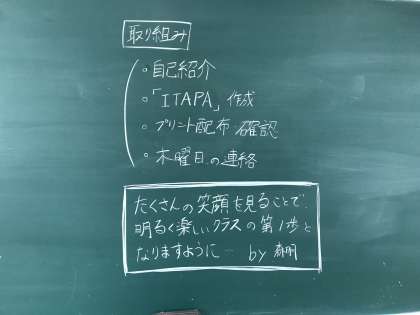 取り組み
・自己紹介
・「ITAPA」作成
・プリント配布・確認
・木曜日の連絡
たくさんの笑顔を見ることで、
明るく楽しいクラスの第1歩と
なりますように… by